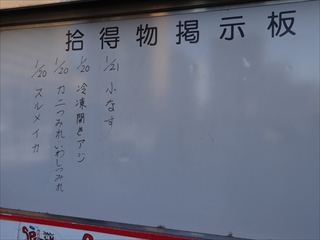 拾得物掲示板
1/21 小なす
1/20 冷凍開きアジ
1/20 カニつみれ いわしつみれ
1/20 スルメイカ